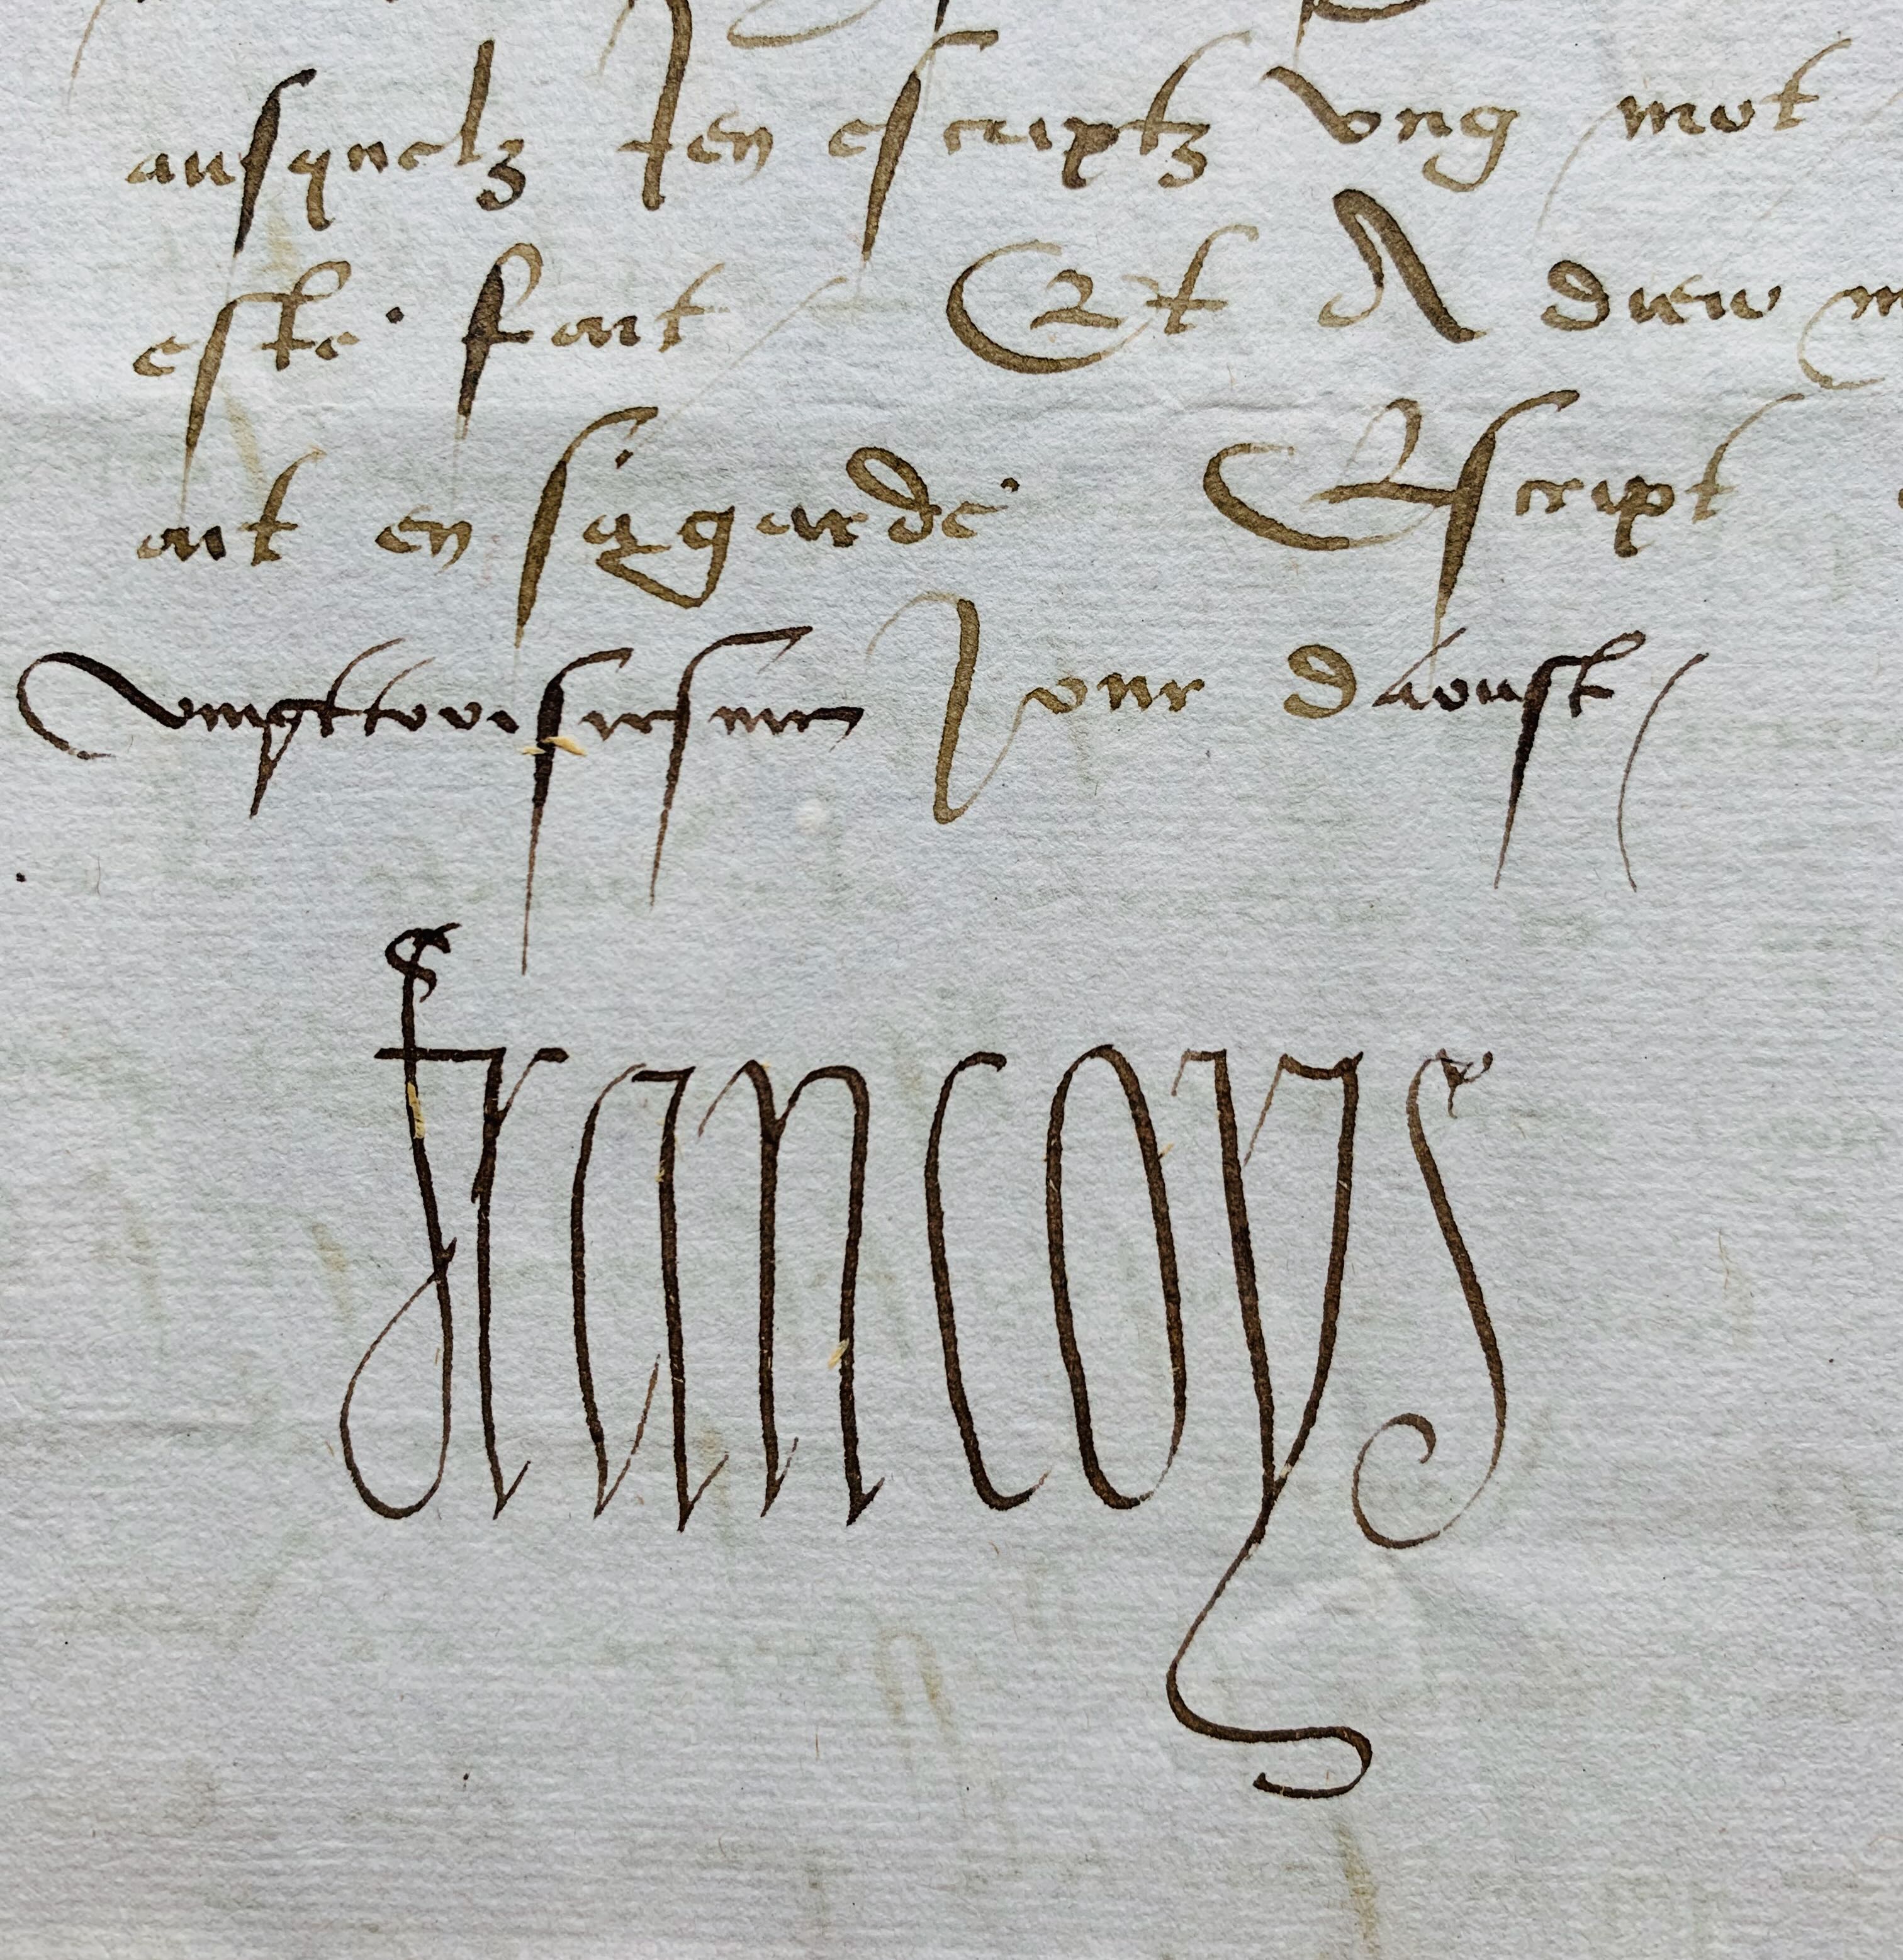 ausquelz Jen escriptz ung mot
este fait Et A dieu m
ait en sa garde Escript
vingttroisiesme Jour daoust
Francoys